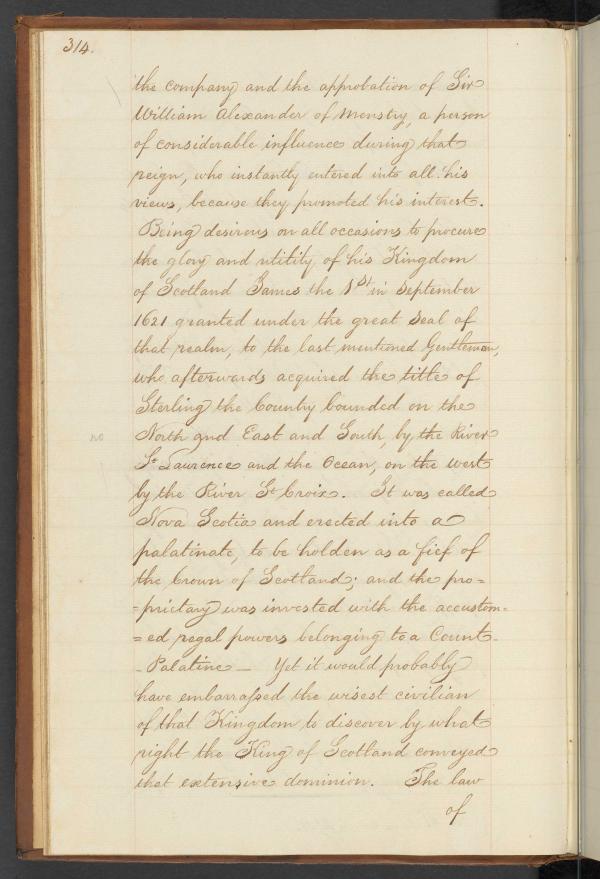 314.
the company and the approbation of Sir
William Alexander of Menstry, a person
of considerable influence during that
reign, who instantly entered into all his
views, because they promoted his interest.
Being desirous on all occasions to procure
the glory and utility of his Kingdom
of Scotland James the 1st in September
1621 granted under the great Seal of
that realm, to the last mentioned Gentleman,
who afterwards acquired the title of
Sterling the Country bounded on the
North and East and South, by the River
no
St Laurence and the Ocean, on the west
by the River St Croix. It was called
Nova Scotia and erected into a
palatinate, to be holden as a fief of
the Crown of Scotland; and the pro=
=prietary was invested with the accustom=
=ed regal powers belonging to a Count-
-Palatine — Yet it would probably
have embarrassed the wisest civilian
of that Kingdom to discover by what
right the King of Scotland conveyed
that extensive dominion. The law
of